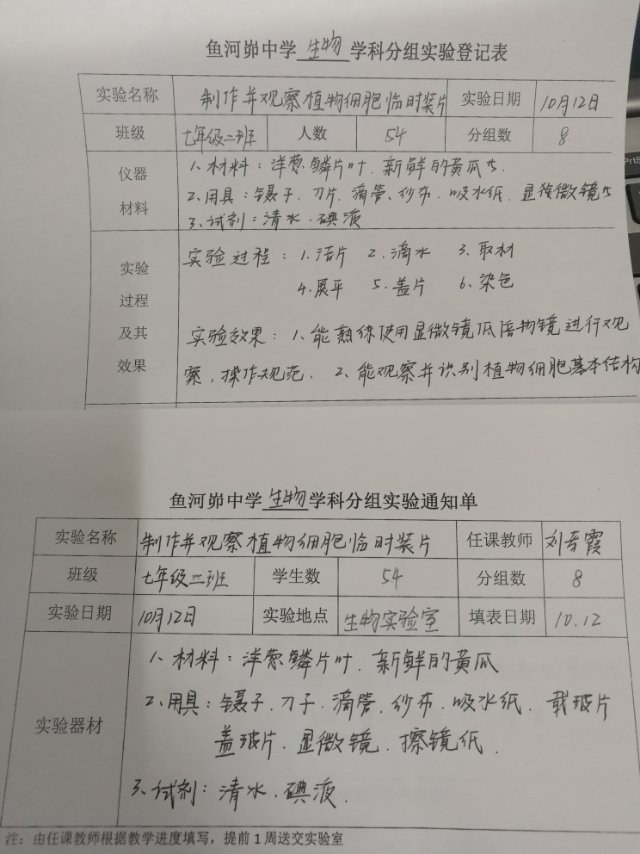 鱼河峁中学生物学科分组实验登记表
实验名称 制作并观察植物细胞临时装片 实验日期 10月12日
班级 七年级二班 人数 54 分组数 8
仪器材料 1、材料：洋葱鳞片叶、新鲜的黄瓜
2、用具：镊子、刀片、滴管、纱布、吸水纸、显微镜
3、试剂：清水、碘液
实验过程及其效果 实验过程：1.活片 2.滴水 3.取材
4.展平 5.盖片 6.染色
实验效果：1、能熟练使用显微镜低倍物镜进行观
察，操作规范、2、能观察并识别植物细胞基本结构
鱼河峁中学生物学科分组实验通知单
实验名称 制作并观察植物细胞临时装片 任课教师 刘霞
班级 七年级二班 学生数 54 分组数 8
实验日期 10月12日 实验地点 生物实验室 填表日期 10.12
实验器材 1、材料：洋葱鳞片叶、新鲜的黄瓜
2、用具：镊子、刀子、滴管、纱布、吸水纸、载玻片
盖玻片、显微镜、擦镜纸、
3、试剂：清水、碘液、
注：由任课教师根据教学进度填写，提前1周送交实验室